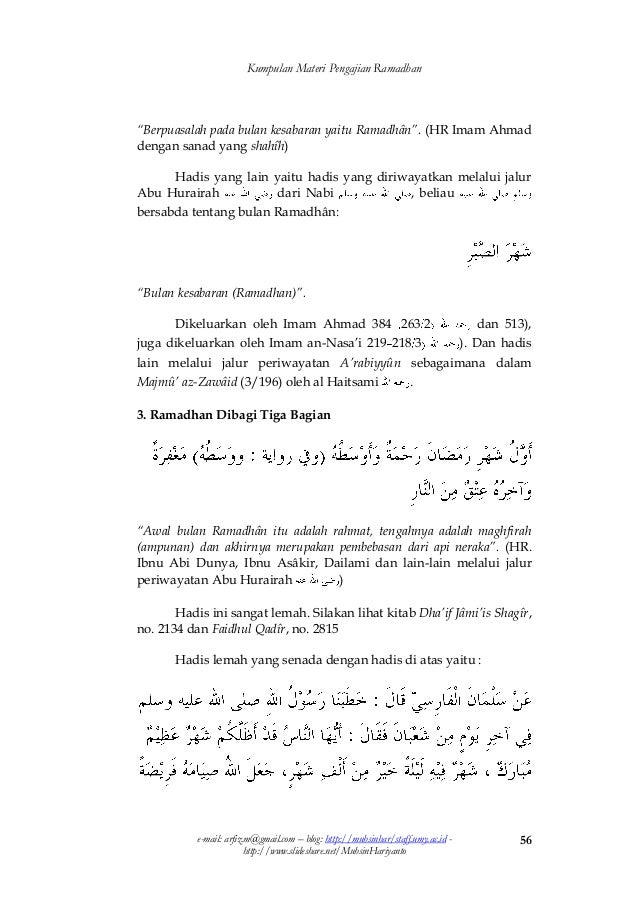 Kumpulan Materi Pengajian Ramadhan
“Berpuasalah pada bulan kesabaran yaitu Ramadhân”. (HR Imam Ahmad
dengan sanad yang shahîh)
Hadis yang lain yaitu hadis yang diriwayatkan melalui jalur
Abu Hurairah رضي الله عنه dari Nabi صلي الله عليه وسلم, beliau صلي الله عليه وسلم
bersabda tentang bulan Ramadhân:
شَهْرَ الصَّبْرِ
“Bulan kesabaran (Ramadhan)”.
Dikeluarkan oleh Imam Ahmad 384 ,263/2) رحمه الله dan 513),
juga dikeluarkan oleh Imam an-Nasa’i 219–218/3) رحمه الله). Dan hadis
lain melalui jalur periwayatan A’rabiyyûn sebagaimana dalam
Majmû’ az-Zawâid (3/196) oleh al Haitsami رحمه الله.
3. Ramadhan Dibagi Tiga Bagian
أَوَّلُ شَهْرِ رَمَضَانَ رَحْمَةٌ وَأَوْسَطُهُ (وفي رواية : ووَسَطُهُ) مَغْفِرَةٌ
وَآخِرُهُ عِتْقٌ مِنَ النَّارِ
“Awal bulan Ramadhân itu adalah rahmat, tengahnya adalah maghfirah
(ampunan) dan akhirnya merupakan pembebasan dari api neraka”. (HR.
Ibnu Abi Dunya, Ibnu Asâkir, Dailami dan lain-lain melalui jalur
periwayatan Abu Hurairah رضي الله عنه)
Hadis ini sangat lemah. Silakan lihat kitab Dha’if Jâmi’is Shagîr,
no. 2134 dan Faidhul Qadîr, no. 2815
Hadis lemah yang senada dengan hadis di atas yaitu :
عَنْ سَلْمَانَ الْفَارِسِيِّ قَالَ : خَطَبَنَا رَسُوْلُ اللهِ صلى الله عليه وسلم
فِي آخِرِ يَوْمٍ مِنْ شَعْبَانَ فَقَالَ : أَيُّهَا النَّاسُ قَدْ أَظَلَّكُمْ شَهْرٌ عَظِيْمٌ
مُبَارَكٌ ، شَهْرٌ فِيْهِ لَيْلَةٌ خَيْرٌ مِنْ أَلْفِ شَهْرٍ، جَعَلَ اللهُ صِيَامَهُ فَرِيْضَةً
e-mail: arfizm@gmail.com – blog: http://muhsinhar/staff.umy.ac.id - 56
http://www.slideshare.net/MuhsinHariyanto